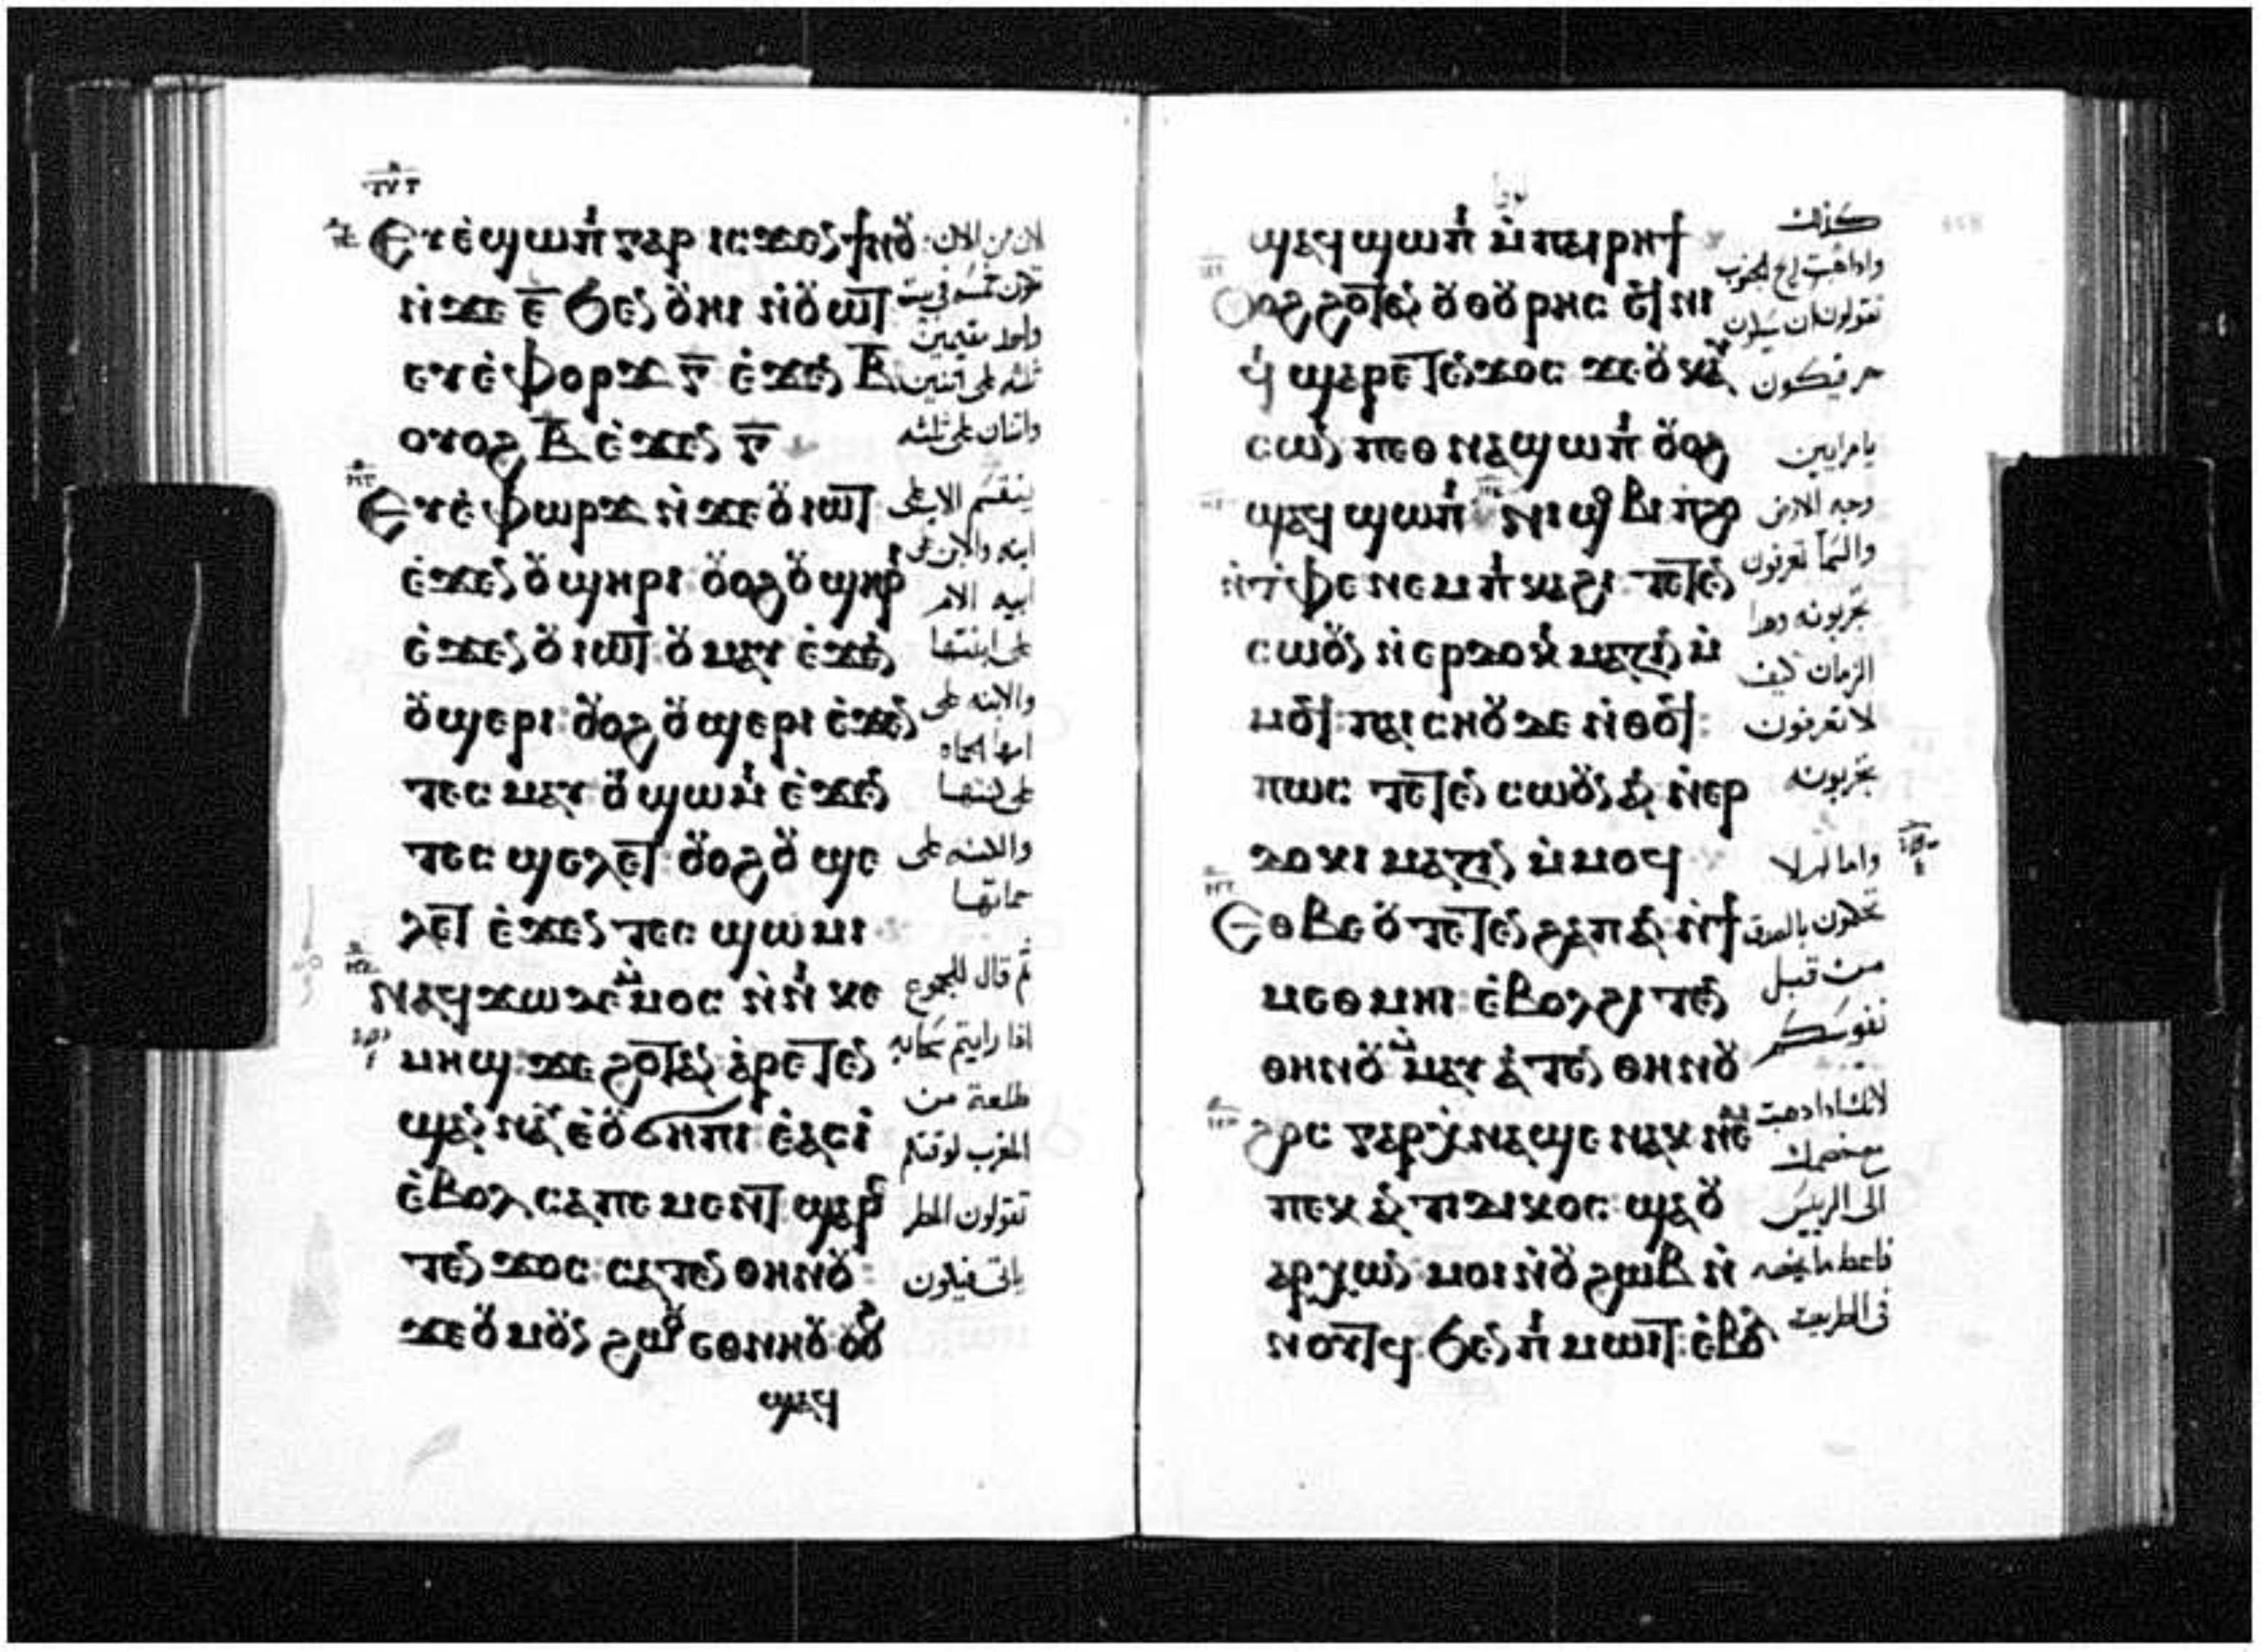 ⲉⲩⲉ̀ϣⲱⲡⲓ ⲅⲁⲣ ⲓⲥϫⲉⲛ ϯⲛⲟⲩ
ⲛ̀ϫⲉ ⲉ̅ ϧⲉⲛ ⲟⲩⲏⲓ ⲛ̀ⲟⲩⲱⲧ
ⲉⲩⲉ̀ⲫⲟⲣϫ ⲅ̅ ⲉ̀ϫⲉⲛ ⲃ̅
ⲟⲩⲟϩ ⲃ̅ ⲉ̀ϫⲉⲛ ⲅ̅
ⲉⲩⲉ̀ⲫⲱⲣϫ ⲛ̀ϫⲉ ⲟⲩⲓⲱⲧ
ⲉ̀ϫⲉⲛ ⲟⲩϣⲏⲣⲓ: ⲟⲩⲟϩ ⲟⲩϣⲏⲣⲓ
ⲉ̀ϫⲉⲛ ⲟⲩⲓⲱⲧ: ⲟⲩⲙⲁⲩ ⲉ̀ϫⲉⲛ
ⲟⲩϣⲉⲣⲓ: ⲟⲩⲟϩ ⲟⲩϣⲉⲣⲓ ⲉ̀ϫⲉⲛ
ⲧⲉⲥ ⲙⲁⲩ ⲟⲩϣⲱⲙⲓ ⲉ̀ϫⲉⲛ
ⲧⲉⲥ ϣⲉⲗⲉⲧ: ⲟⲩⲟϩ ⲟⲩϣⲉ
ⲗⲉⲧ ⲉ̀ϫⲉⲛ ⲧⲉⲥ ϣⲱⲙⲓ
ⲛⲁϥϫⲱ ⲇⲉ ⲙ̀ⲙⲟⲥ ⲛ̀ⲛⲓ ⲕⲉ
ⲙⲏϣ: ϫⲉ ϩⲟⲧⲁⲛ ⲁ̀ⲣⲉⲧⲉⲛ
ϣⲁⲛ ⲛⲁⲩ ⲉ̀ⲟⲩϭⲏⲡⲓ ⲉ̀ⲁⲥⲓ̀
ⲉ̀ⲃⲟⲗ ⲥⲁ ⲡⲉⲙⲉⲛⲧ: ϣⲁⲣⲉ
ⲧⲉⲛ ϫⲟⲥ: ⲥⲁⲧⲉⲛ ⲑⲏⲛⲟⲩ:
ϫⲉ ⲟⲩⲙⲟⲩⲛ ϩⲱⲟⲩ ⲉⲑⲛⲏⲟⲩ: ⲟⲩⲟϩ
ϣⲁϥ
لان من الان
تكون خمسه في بيت
واحد مقيمين
ثلثه على اثنين
واثنان على ثلثه
ينقسم الاب على
ابنه والابن على
ابيه الام
على ابنتها
والابنه على
امها الحماه
على كنتها
والكنه على
حماتها
ثم قال للجموع
اذا رايتم سحابه
طلعة من
المغرب لوقتكم
تقولون المطر
ياتى فيكون
ϣⲁϥϣⲱⲡⲓ ⲙ̀ⲡⲁⲓⲣⲏϯ
ⲟⲩⲟϩ ϩⲟⲧⲁⲛ ⲟⲩⲑⲟⲩⲣⲏⲥ ⲛ̀ⲧⲉϥⲛⲓ
ϥⲓ ϣⲁⲣⲉⲧⲉⲛϫⲟⲥ ϫⲉ ⲟⲩⲕⲁⲩ
ⲥⲱⲛ ⲡⲉⲑ ⲛⲁϣⲱⲡⲓ ⲟⲩⲟϩ
ϣⲁϥϣⲱⲡⲓ ⲛⲓϣⲟⲃⲓ ⲡ̀ϩⲟ
ⲛ̀ⲧⲫⲉ ⲛⲉⲙ ⲡ̀ⲕⲁϩⲓ: ⲧⲉⲧⲉⲛ
ⲥⲱⲟⲩⲛ ⲛ̀ⲉⲣⲇⲟⲕⲓⲙⲁⲍⲓⲛ ⲙ̀
ⲙⲱⲟⲩ: ⲡⲁⲓ ⲥⲏⲟⲩ ⲇⲉ ⲛ̀ⲑⲟϥ:
ⲡⲱⲥ ⲧⲉⲧⲉⲛ ⲥⲱⲟⲩⲛ ⲁⲛ ⲛ̀ⲉⲣ
ⲇⲟⲕⲓⲙⲁⲍⲓⲛ ⲙ̀ⲙⲟϥ
ⲉⲑⲃⲉ ⲟⲩ ⲧⲉⲧⲉⲛϩⲁⲡ ⲁⲛ ⲛ̀ϯ
ⲙⲉⲑⲙⲏⲓ: ⲉ̀ⲃⲟⲗϩⲓ ⲧⲉⲛ
ⲑⲏⲛⲟⲩ ⲙ̀ⲙⲁⲩⲁⲧⲉⲛ ⲑⲏⲛⲟⲩ
ϩⲱⲥ ⲅⲁⲣ ⲭ̀ⲛⲁϣⲉ ⲛⲁⲕ ⲛⲉⲙ
ⲡⲉⲕ ⲁⲛⲧⲓⲇⲓⲕⲟⲥ: ϣⲁ ⲟⲩ
ⲁⲣⲭⲱⲛ: ⲙⲟⲓ ⲛ̀ⲟⲩϩⲱⲃ ⲛ̀
ⲛⲟⲩⲧϥ: ϧⲉⲛ ⲡⲓ ⲙⲱⲓⲧ: ⲉ̀ⲃⲟⲗ
كذلك
واذا هبت ريح الجنوب
تقولون ان سيكون
حر فيكون
يا مرايين
وجه الارض
والسما تعرفون
تجربونه وهذا
الزمان كيف
لا تعرفون
تجربونه
واما لم لا
تحكمون بالصدق
من قبل
نفوسكم
لانك اذا ذهبت
مع خصمك
الى الرييس
فاعط ما يخصه
فى الطريق